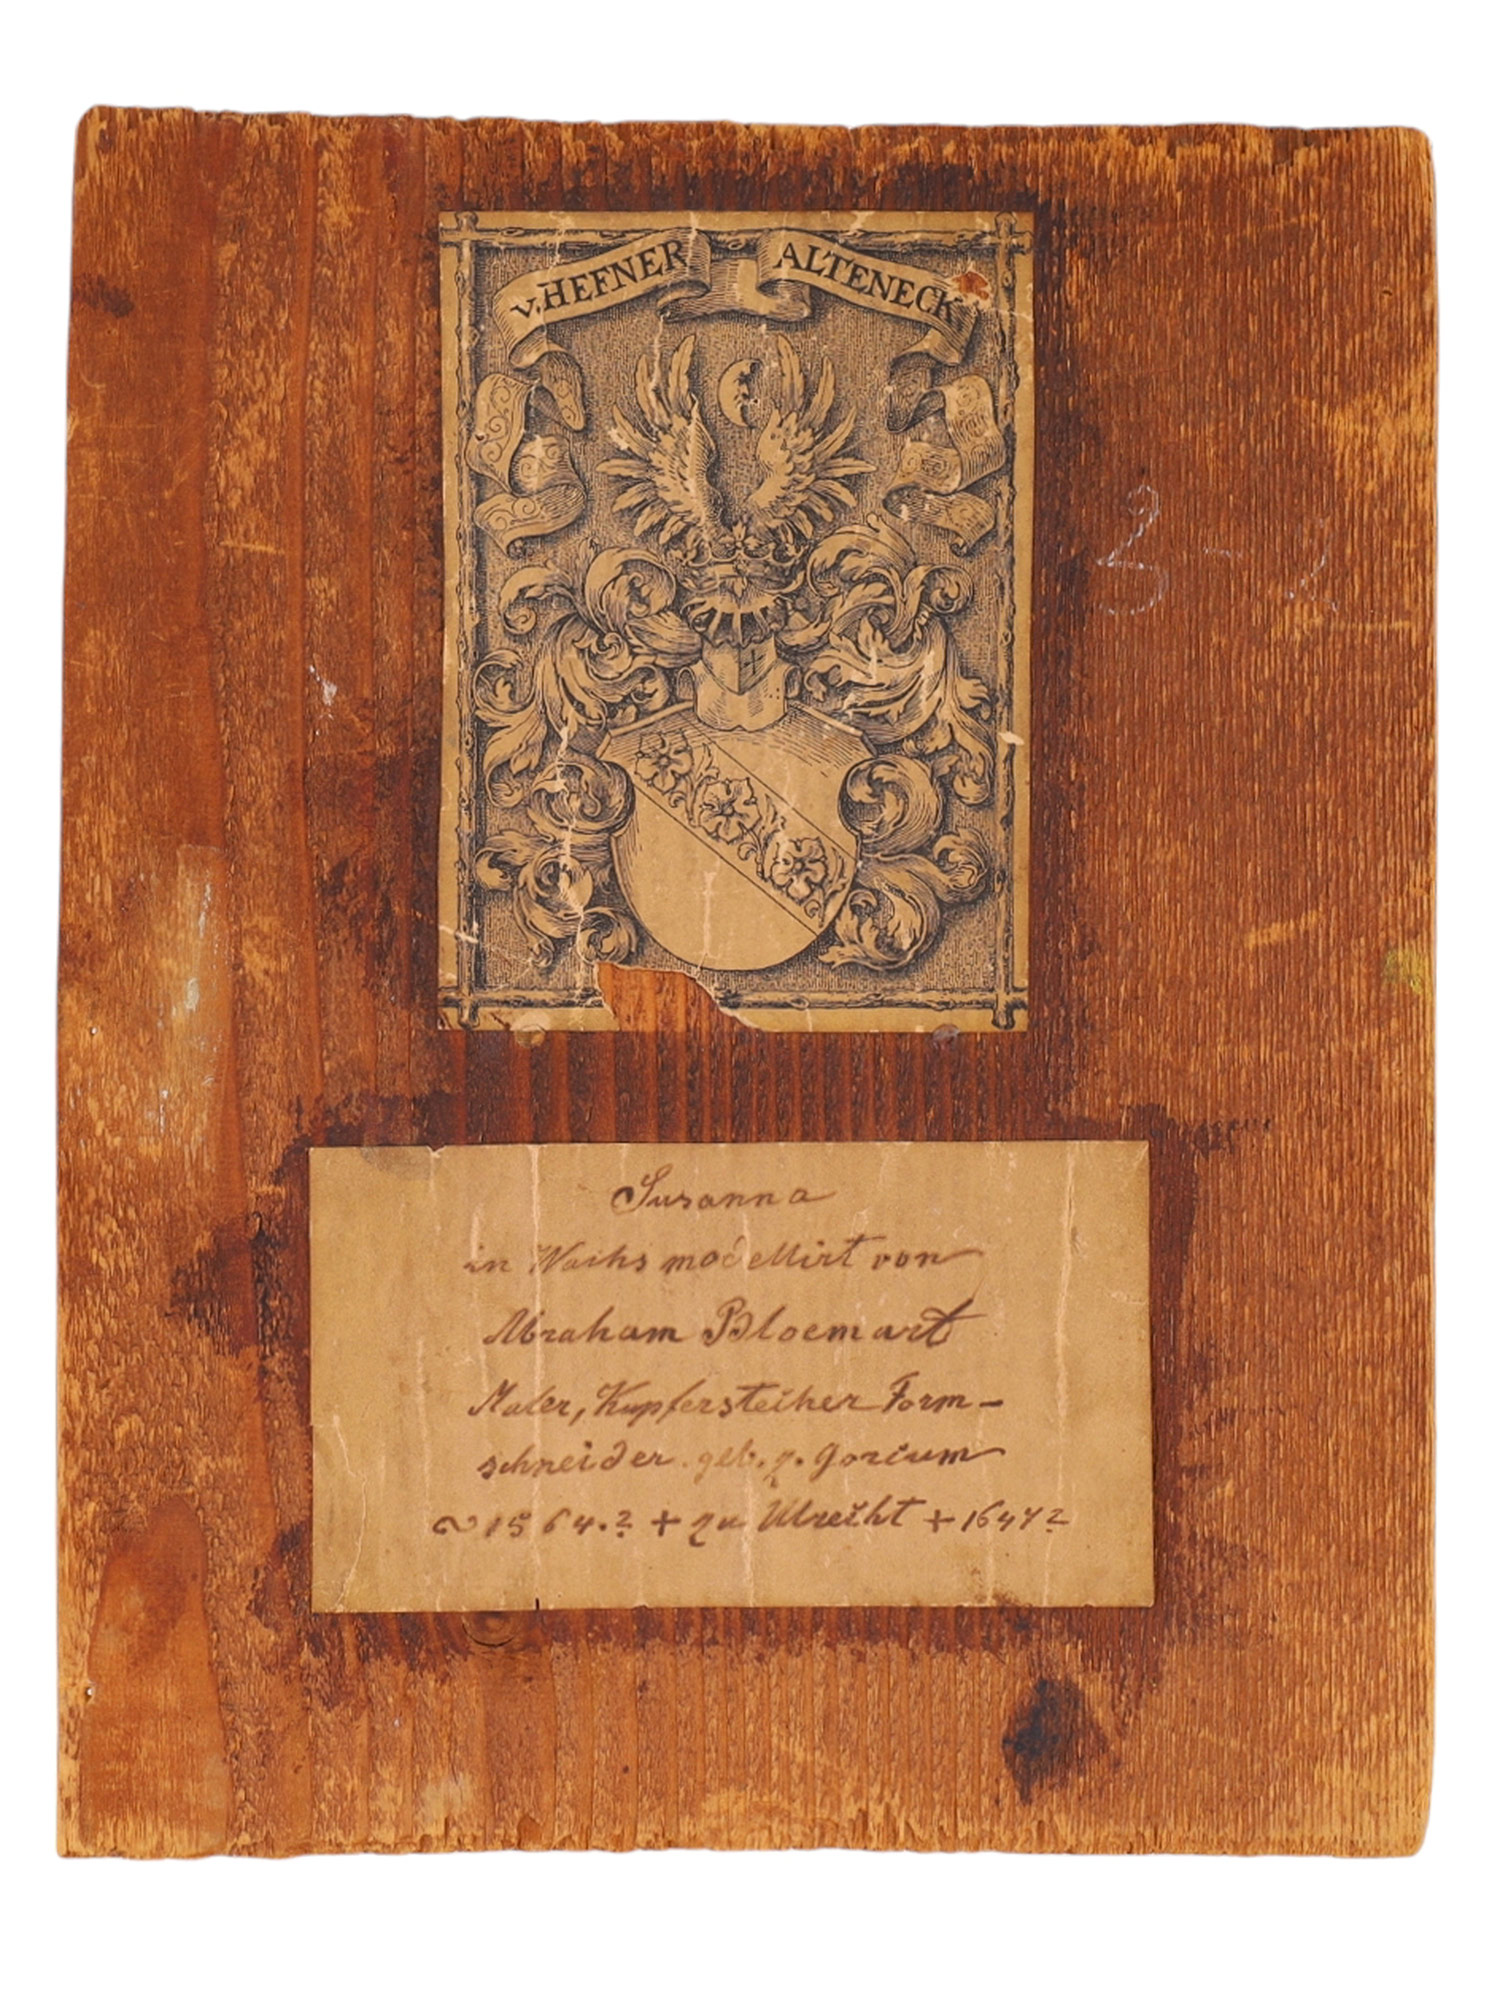 v. HEFNER ALTENECK
Susanna
in Wachs modellirt von
Abraham Bloemart
Maler, Kupfersteiher Form-
schneider. geb. z. Gorcum
1564.? + zu Utrecht + 1647?